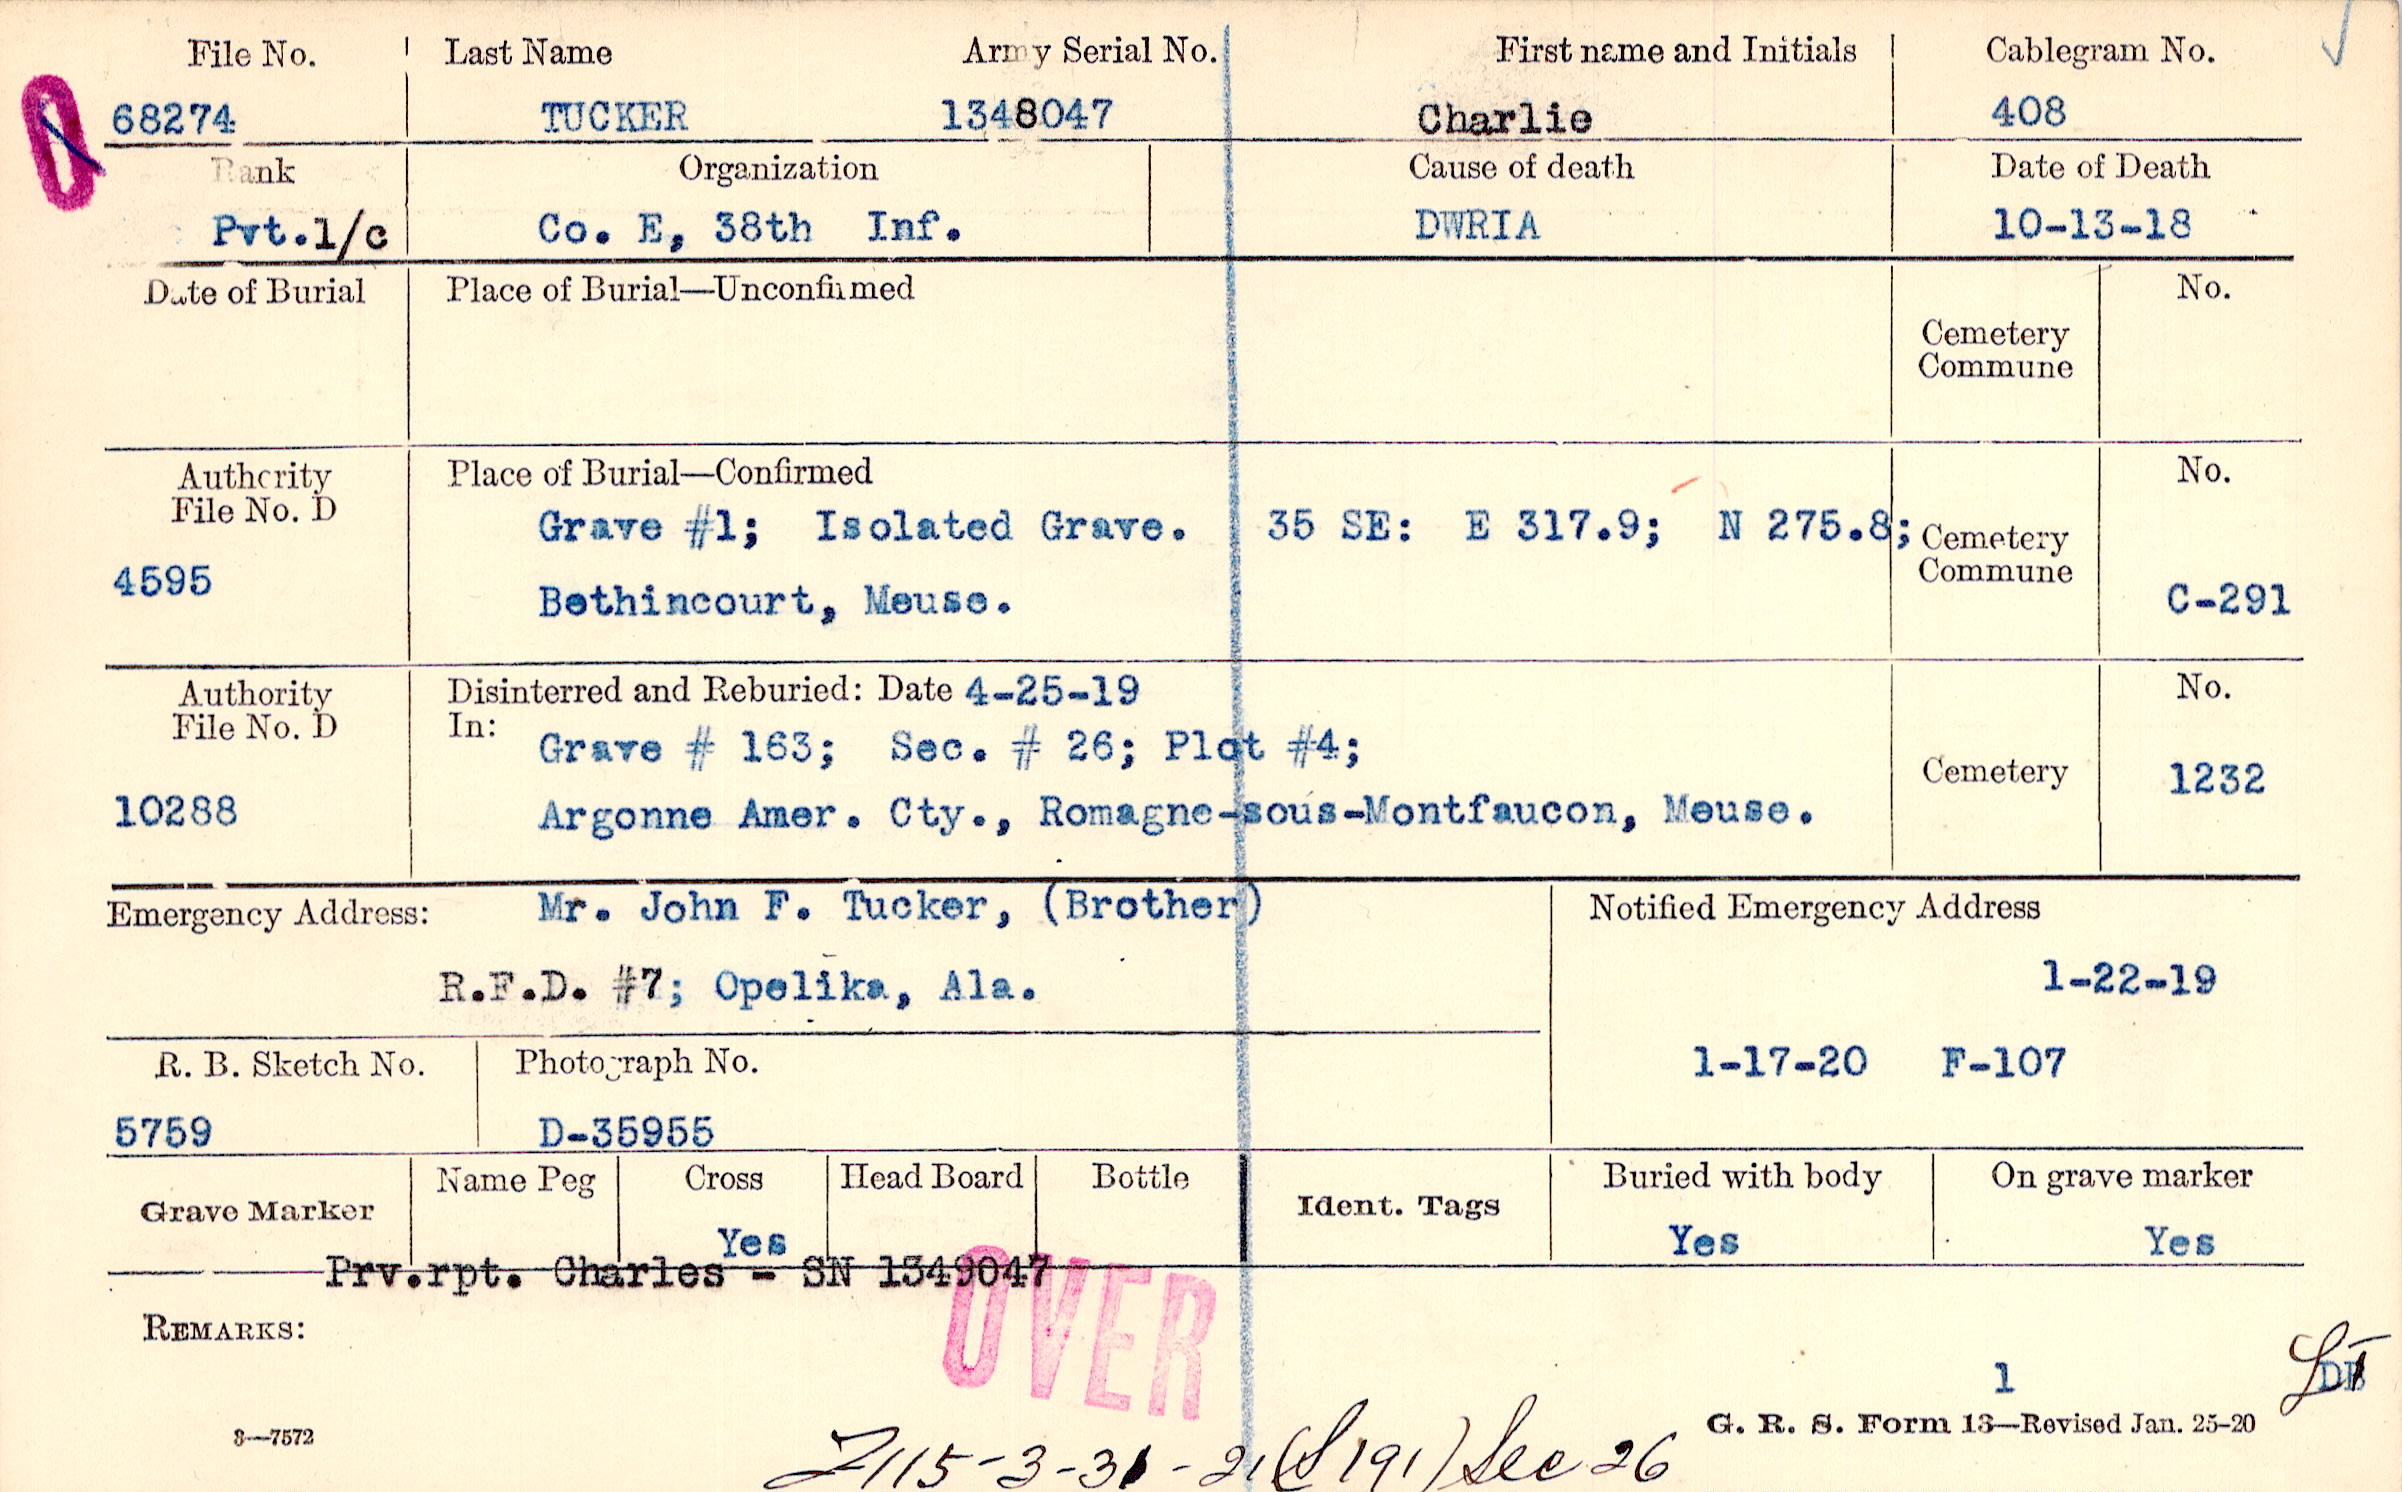 File No. Last Name Army Serial No. First name and Initials Cablegram No.
68274 TUCKER 1348047 Charlie 408
Rank Organization Cause of death Date of Death
Pvt.1/c Co. E, 38th Inf. DWRIA 10-13-18
Date of Burial Place of Burial—Unconfirmed No.
Cemetery
Commune
Authority Place of Burial—Confirmed No.
File No. D
Grave #1; Isolated Grave. 35 SE: E 317.9; N 275.8; Cemetery
Commune
4595 Bethincourt, Meuse. C-291
Authority Disinterred and Reburied: Date 4-25-19 No.
File No. D In:
Grave # 163; Sec. # 26; Plot #4;
Cemetery 1232
10288 Argonne Amer. Cty., Romagne-sous-Montfaucon, Meuse.
Emergency Address: Mr. John F. Tucker, (Brother) Notified Emergency Address
R.F.D. #7; Opelika, Ala. 1-22-19
R. B. Sketch No. Photograph No. 1-17-20 F-107
5759 D-35955
Name Peg Cross Head Board Bottle Buried with body On grave marker
Grave Marker Ident. Tags
Yes Yes Yes
Prv.rpt. Charles - SN 1349047
OVER
REMARKS:
1
G. R. S. Form 13—Revised Jan. 25-20
3—7572
Z115-3-31-21(S191) Sec 26